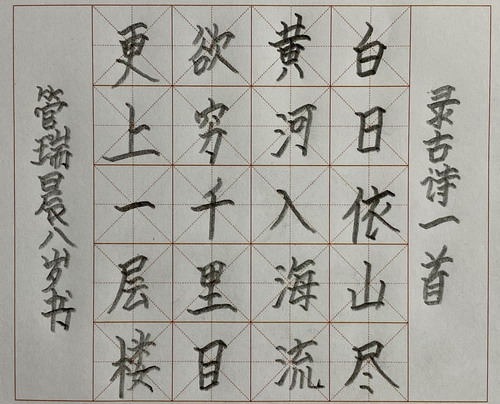 录古诗一首
白日依山尽
黄河入海流
欲穷千里目
更上一层楼
管瑞晨八岁书